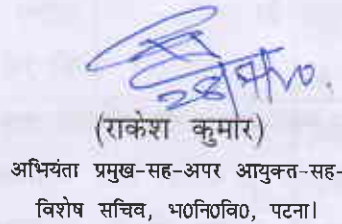 28/7/20.
(राकेश कुमार)
अभियंता प्रमुख-सह-अपर आयुक्त-सह-
विशेष सचिव, भ०नि०वि०, पटना।